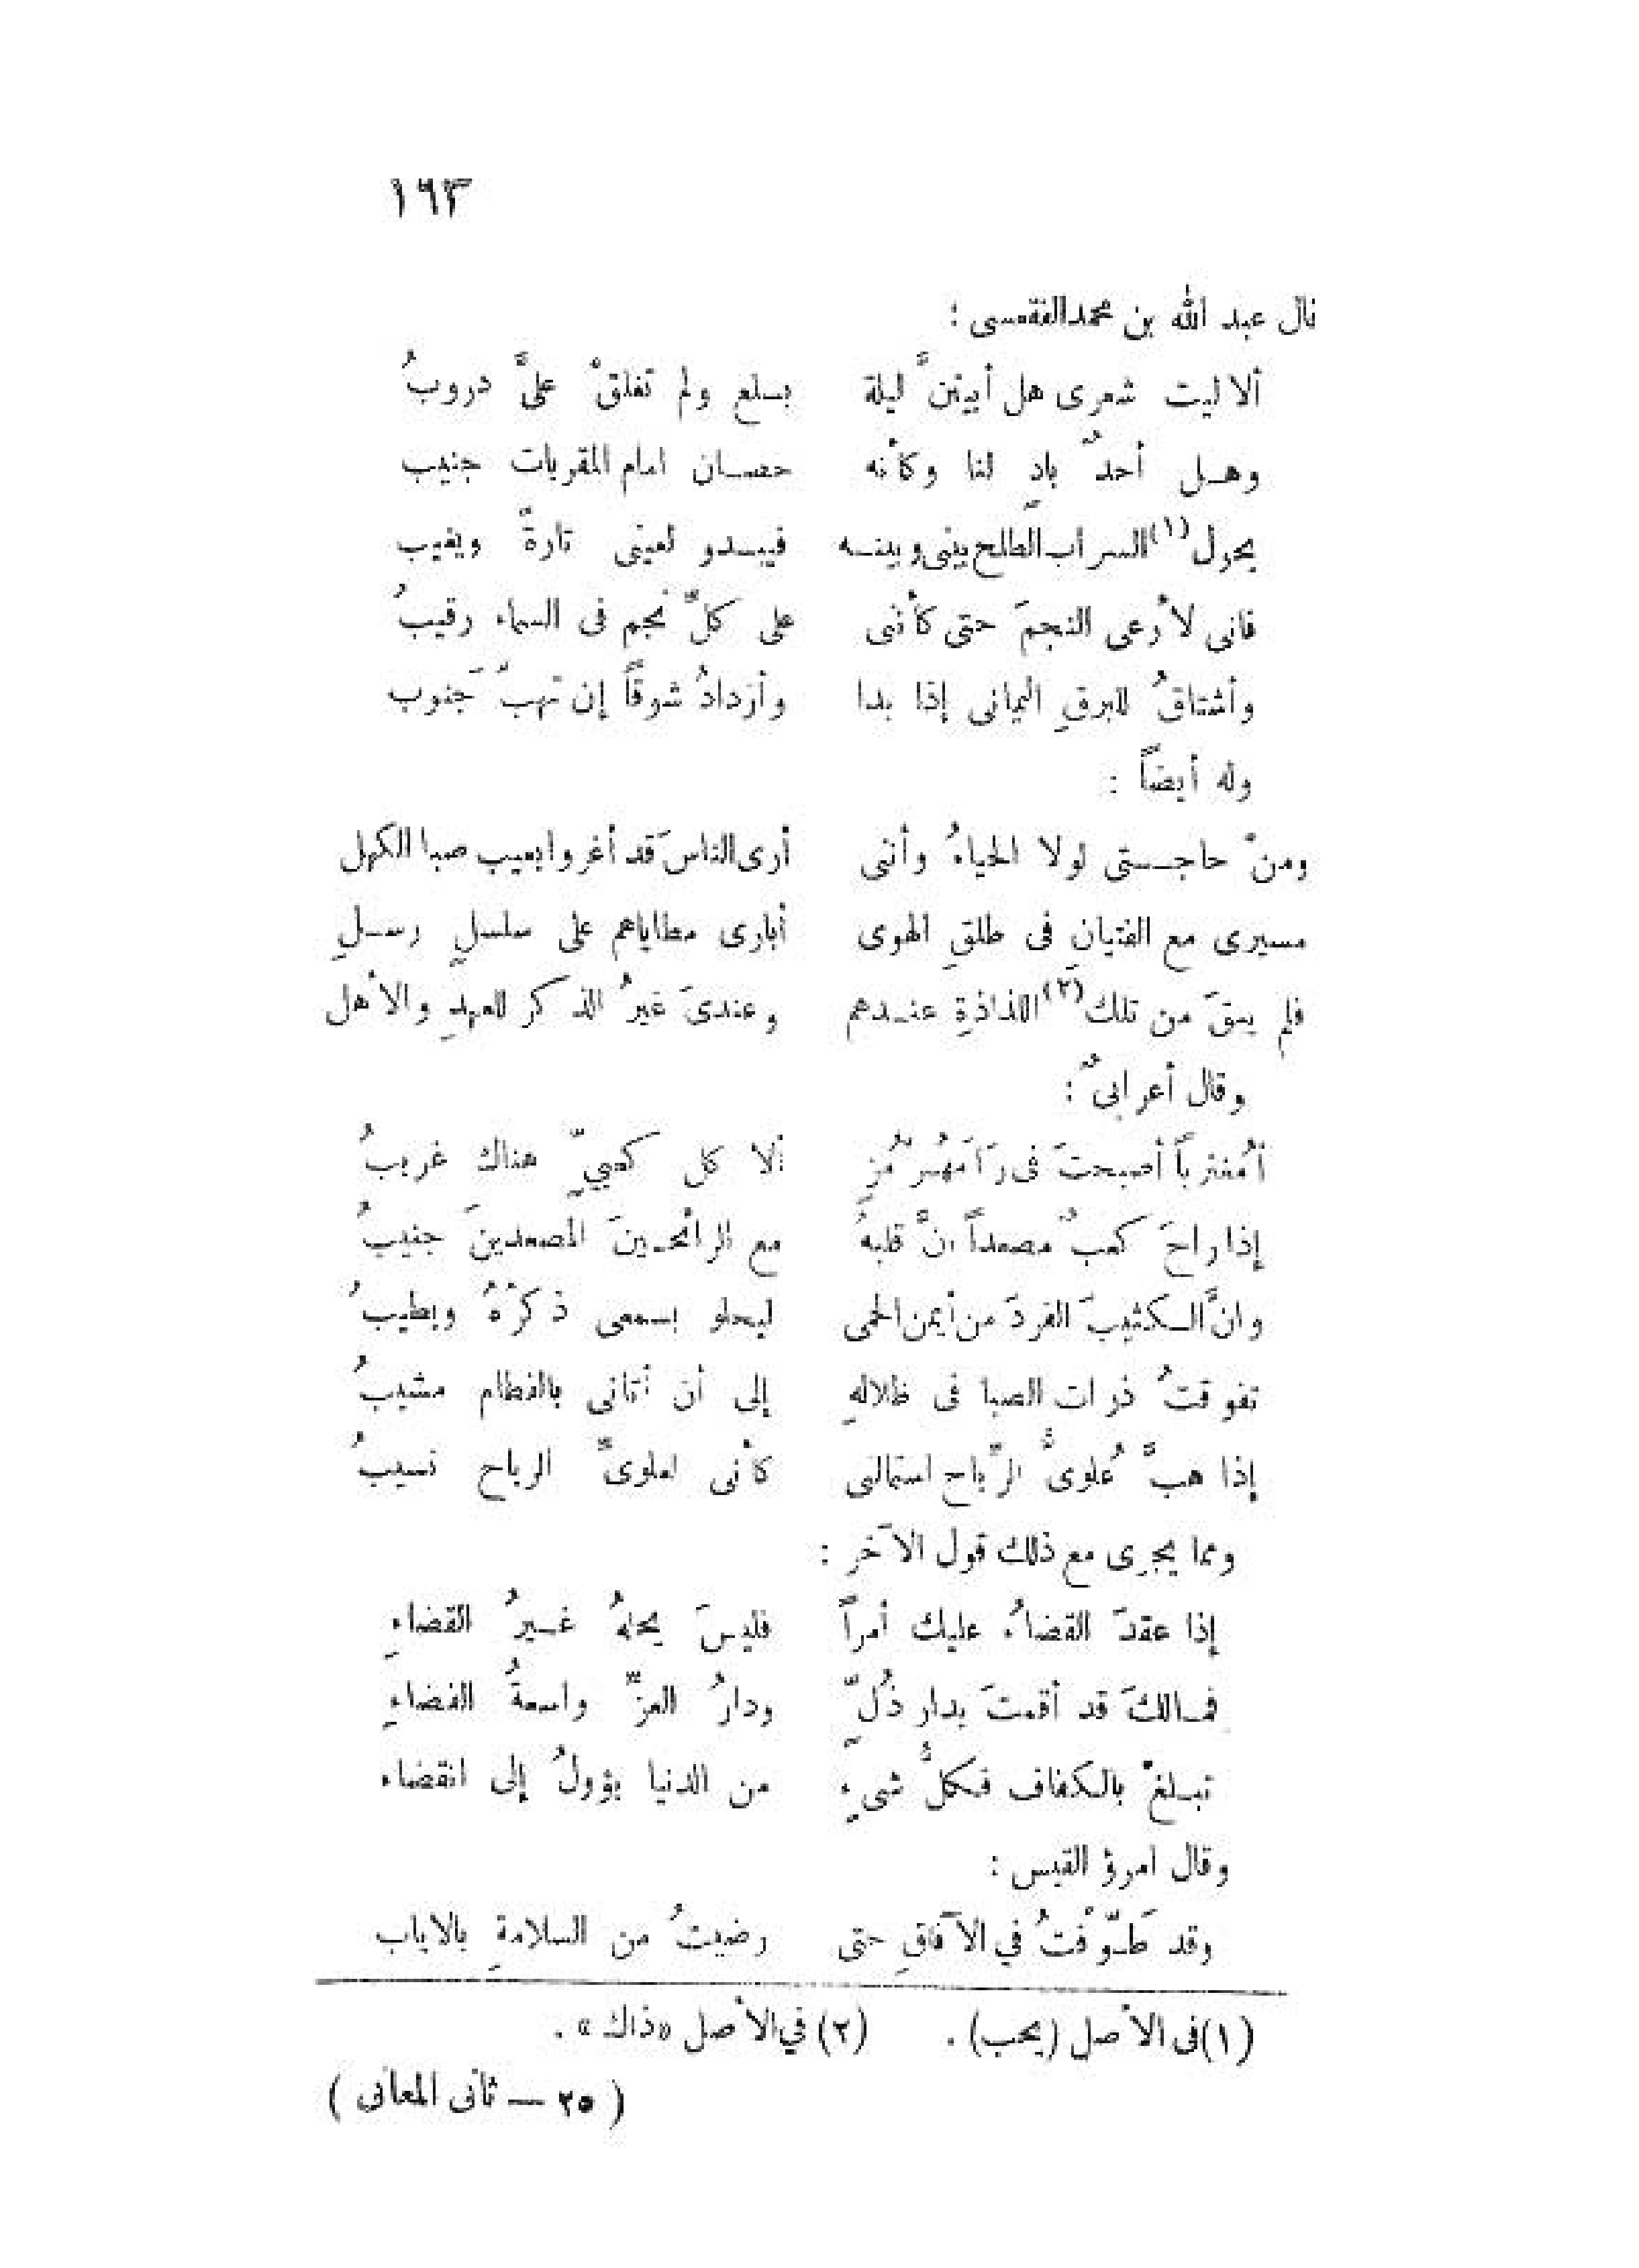 ١٦٣
قال عبد الله بن محمد الفقعسى :
ألا ليت شعرى هل أبيتنَّ ليلة بسلع ولم تغلقْ علىَّ دروبُ
وهـل أحدٌ بادٍ لنا وكأنه حصـان امام المقربات جنيب
يحول(١) السراب الطلح بينى وبينـه فيبـدو لعينى تارةً ويغيب
فانى لأرعى النجمَ حتى كأننى على كلِّ نجم فى السماء رقيبُ
وأشتاقُ للبرقِ اليمانى إذا بدا وأزدادُ شوقاً إن تهبَّ جَنوب
وله أيضاً :
ومنْ حاجـتى لولا الحياءُ وأننى أرى الناسَ قد أغروا بعيب صبا الكهل
مسيرى مع الفتيانِ فى طلقِ الهوى أبارى مطاياهم على سلسلٍ رسـلِ
فلم يبقَ من تلك(٢) اللذاذةِ عنـدهم وعندىَ غيرُ الذكر للعهدِ والأهل
وقال أعرابىٌّ :
أمُغترباً أصبحتَ فى رَامَهُرْمُزٍ ألا كل كعبيٍّ هناك غريبُ
إذا راحَ كعبٌ مصعداً انَّ قلبهُ مع الرائحـينَ المصعدينَ جنيبُ
وانَّ الـكثيبَ الفردَ من أيمن الحمى ليحلو بسمعى ذكرُهُ ويطيبُ
تفوقتُ درات الصبا فى ظلالهِ إلى أن أتانى بالفطام مشيبُ
إذا هبَّ عُلوىُّ الرِّياح استمالنى كأنى لعلوىِّ الرياح نسيبُ
ومما يجرى مع ذلك قول الآخر :
إذا عقدَ القضاءُ عليك أمراً فليسَ يحلهُ غـيرُ القضاءِ
فمـالكَ قد أقمتَ بدار ذُلٍّ ودارُ العزِّ واسعةُ الفضاءِ
تبـلغْ بالـكفاف فـكلُّ شىءٍ من الدنيا يؤولُ إلى انقضاء
وقال امرؤ القيس :
وقد طَـوَّفْتُ في الآفاقِ حتى رضيتُ من السلامةِ بالاياب
(١) فى الأصل (يحب) . (٢) في الأصل «ذاك» .
( ٢٥ — ثانى المعانى )